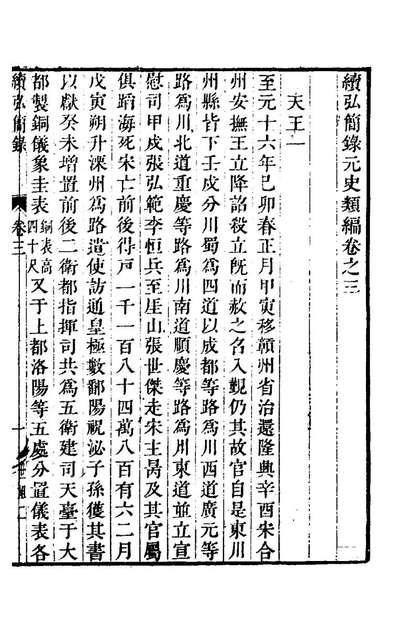 續弘簡錄元史類編卷之三
天王二
至元十六年己卯春正月甲寅移贛州省治還隆興辛酉宋合
州安撫王立降詔殺立旣而赦之名入覲仍其故官自是東川
州縣皆下壬戌分川蜀爲四道以成都等路爲川西道廣元等
路爲川北道重慶等路爲川南道順慶等路爲川東道並立宣
慰司甲戌張弘範李恒兵至厓山張世傑走宋主昺及其官屬
俱蹈海死宋亡前後得戸一千一百八十四萬八百有六二月
戊寅朔升溧州爲路遣使訪通皇極數鄱陽祝泌子孫獲其書
以獻癸未增置前後二衛都指揮司共爲五衛建司天臺于大
都製銅儀象圭表銅表高四十尺又于上都洛陽等五處分置儀表各
續弘簡錄
卷三
一